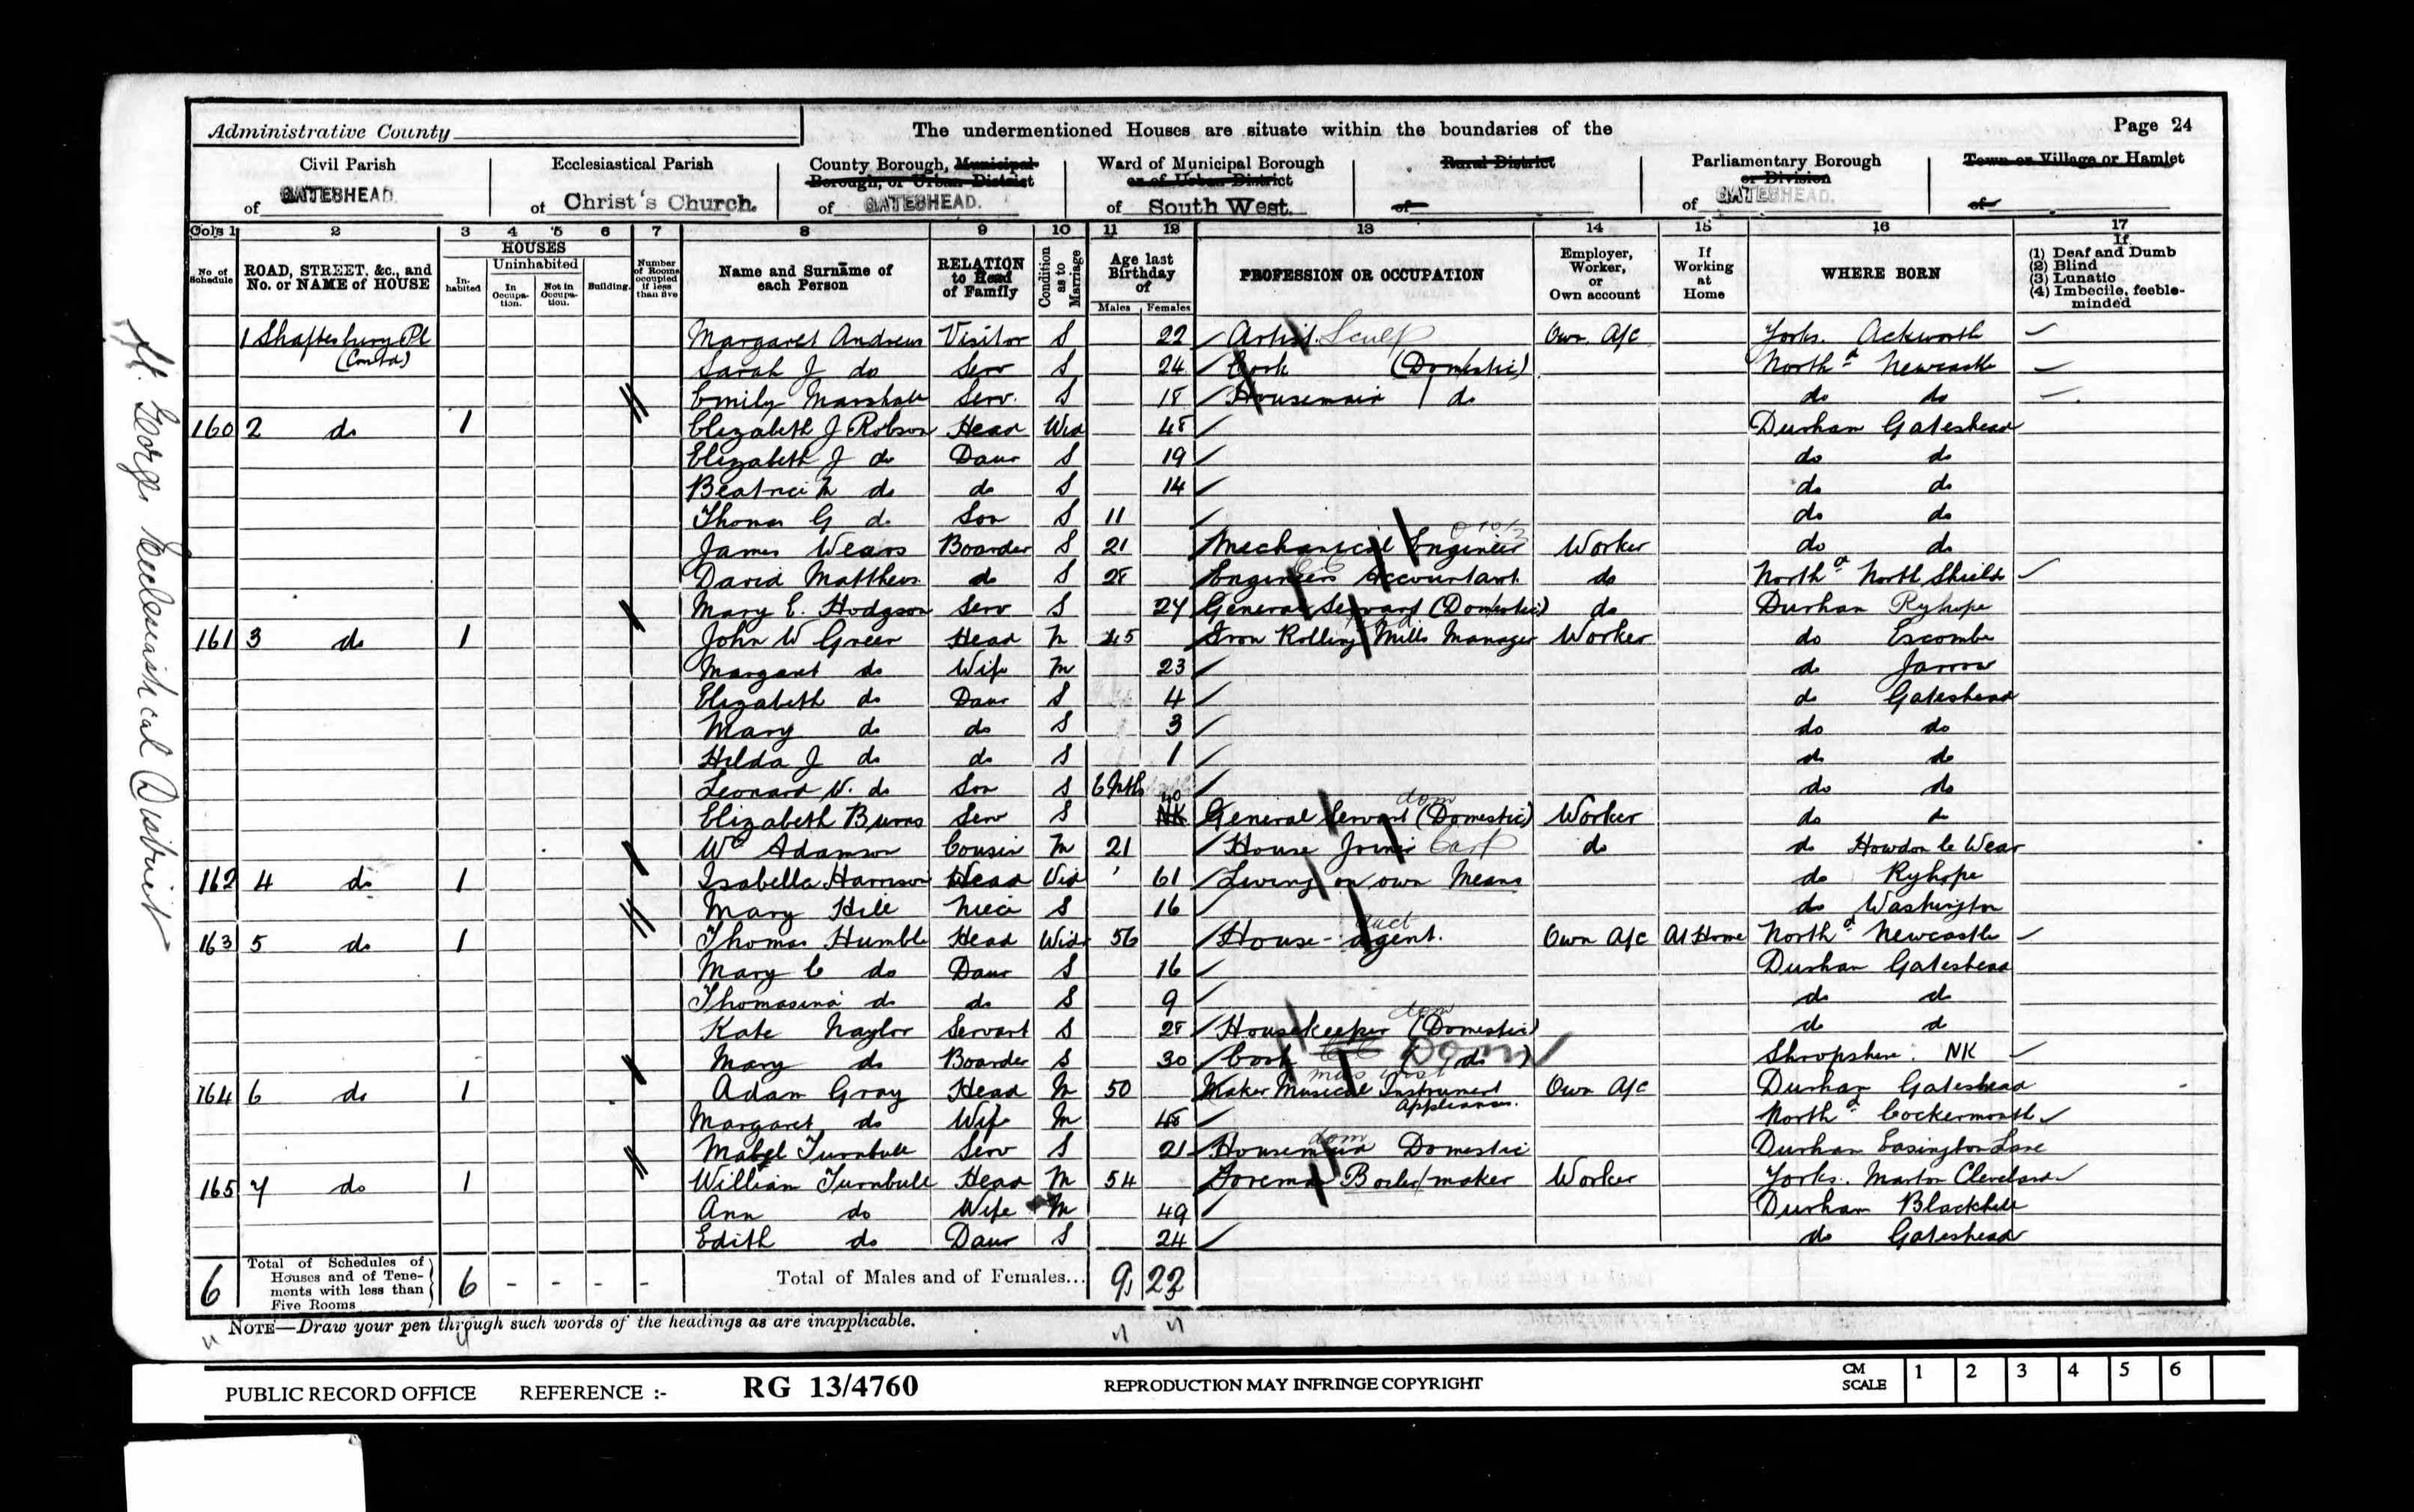 Administrative County
The undermentioned Houses are situate within the boundaries of the
Page 24
Civil Parish of GATESHEAD.
Ecclesiastical Parish of Christ's Church.
County Borough, Municipal Borough, or Urban District of GATESHEAD.
Ward of Municipal Borough or of Urban District of South West.
Rural District of
Parliamentary Borough or Division of GATESHEAD.
Town or Village or Hamlet of
Cols 1 2 3 4 5 6 7 8 9 10 11 12 13 14 15 16 17
No of Schedule
ROAD, STREET, &c., and No. or NAME of HOUSE
HOUSES
Inhabited
Uninhabited
In Occupation.
Not in Occupation.
Building.
Number of Rooms occupied if less than five
Name and Surname of each Person
RELATION to Head of Family
Condition as to Marriage
Age last Birthday of
Males Females
PROFESSION OR OCCUPATION
Employer, Worker, or Own account
If Working at Home
WHERE BORN
If
(1) Deaf and Dumb
(2) Blind
(3) Lunatic
(4) Imbecile, feeble-minded
1 Shaftesbury Pl Margaret Andrews Visitor S 22 Artist Sculp Own A/c Yorks. Ackworth
(Contd) Sarah J do Serv S 24 Cook (Domestic) Northd Newcastle
Emily Marshall Serv. S 18 Housemaid do do do
160 2 do 1 Elizabeth J Robson Head Wid 48 Durham Gateshead
Elizabeth J do Daur S 19 do do
Beatrice M do do S 14 do do
Thomas G do Son S 11 do do
James Wears Boarder S 21 Mechanical Engineer Worker do do
David Matthews do S 28 Engineers Accountant do Northd North Shields
Mary E. Hodgson Serv S 24 General Servant (Domestic) do Durham Ryhope
161 3 do 1 John W Greer Head M 45 Iron Rolling Mills Manager Worker do Escombe
Margaret do Wife M 23 do Jarrow
Elizabeth do Daur S 4 do Gateshead
Mary do do S 3 do do
Hilda J do do S 1 do do
Leonard W. do Son S 6 Mths do do
Elizabeth Burns Serv S NK 40 General Servant (Domestic) dom Worker do do
Wm Adamson Cousin M 21 House Joiner Carp do do Howdon le Wear
162 4 do 1 Isabella Harrison Head Wid 61 Living on own Means do Ryhope
Mary Hill Niece S 16 do Washington
163 5 do 1 Thomas Humble Head Widr 56 House-agent. auct Own A/c At Home Northd Newcastle
Mary C do Daur S 16 Durham Gateshead
Thomasina do do S 9 do do
Kate Naylor Servant S 28 Housekeeper (Domestic) dom do do
Mary do Boarder S 30 Cook (do) Dom Shropshire. NK
164 6 do 1 Adam Gray Head M 50 Maker Musical Instrument Appliances. mus inst Own A/c Durham Gateshead
Margaret do Wife M 48 Northd Cockermouth
Mabel Turnbull Serv S 21 Housemaid Domestic dom Durham Easington Lane
165 7 do 1 William Turnbull Head M 54 Foreman Boiler maker Worker Yorks. Marton Cleveland
Ann do Wife M 49 Durham Blackhill
Edith do Daur S 24 do Gateshead
6 Total of Schedules of Houses and of Tenements with less than Five Rooms 6 - - - - Total of Males and of Females... 9 22
NOTE—Draw your pen through such words of the headings as are inapplicable.
St. Georges Ecclesiastical District
PUBLIC RECORD OFFICE REFERENCE :- RG 13/4760 REPRODUCTION MAY INFRINGE COPYRIGHT CM SCALE 1 2 3 4 5 6